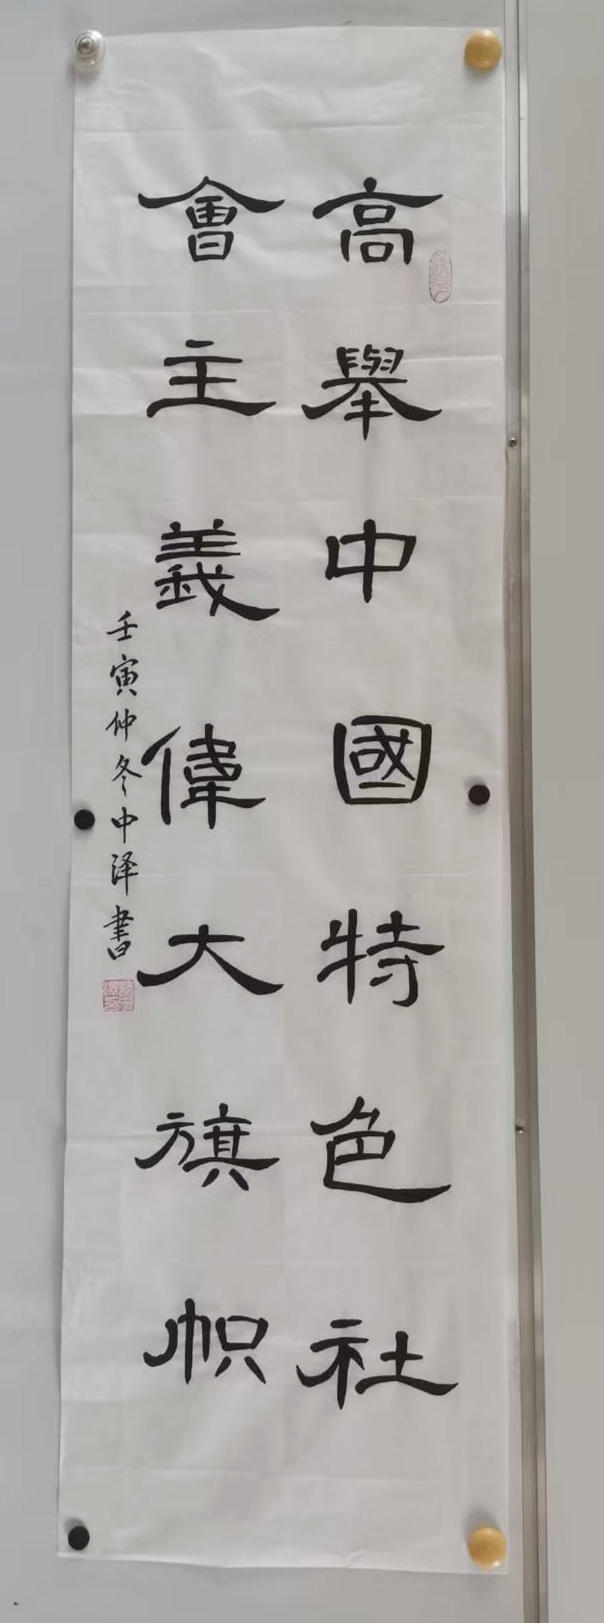 高舉中國特色社
會主義偉大旗帜
壬寅仲冬中泽書